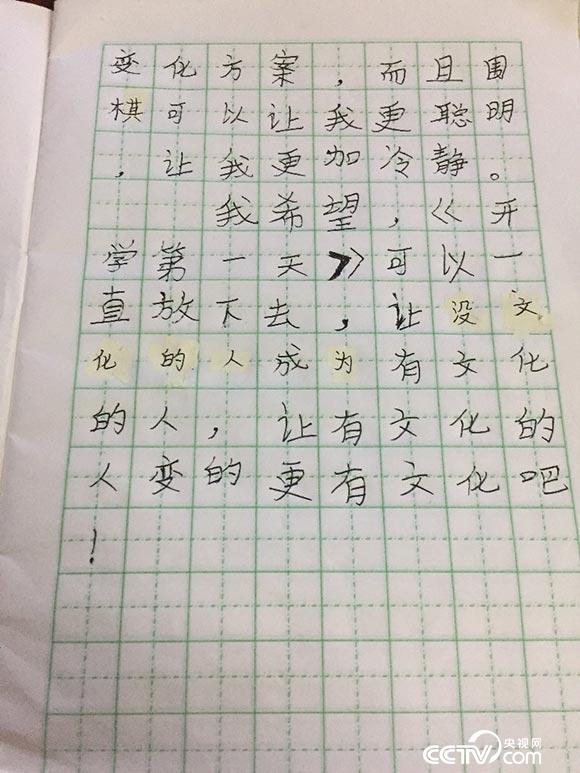 变化方案，而且围
棋可以让我更聪明
，让我更加冷静。
我希望，《开
学第一天》可以一
直放下去，让没文
化的人成为有文化
的人，让有文化的
人变的更有文化吧
！
央视网
CCTV.com